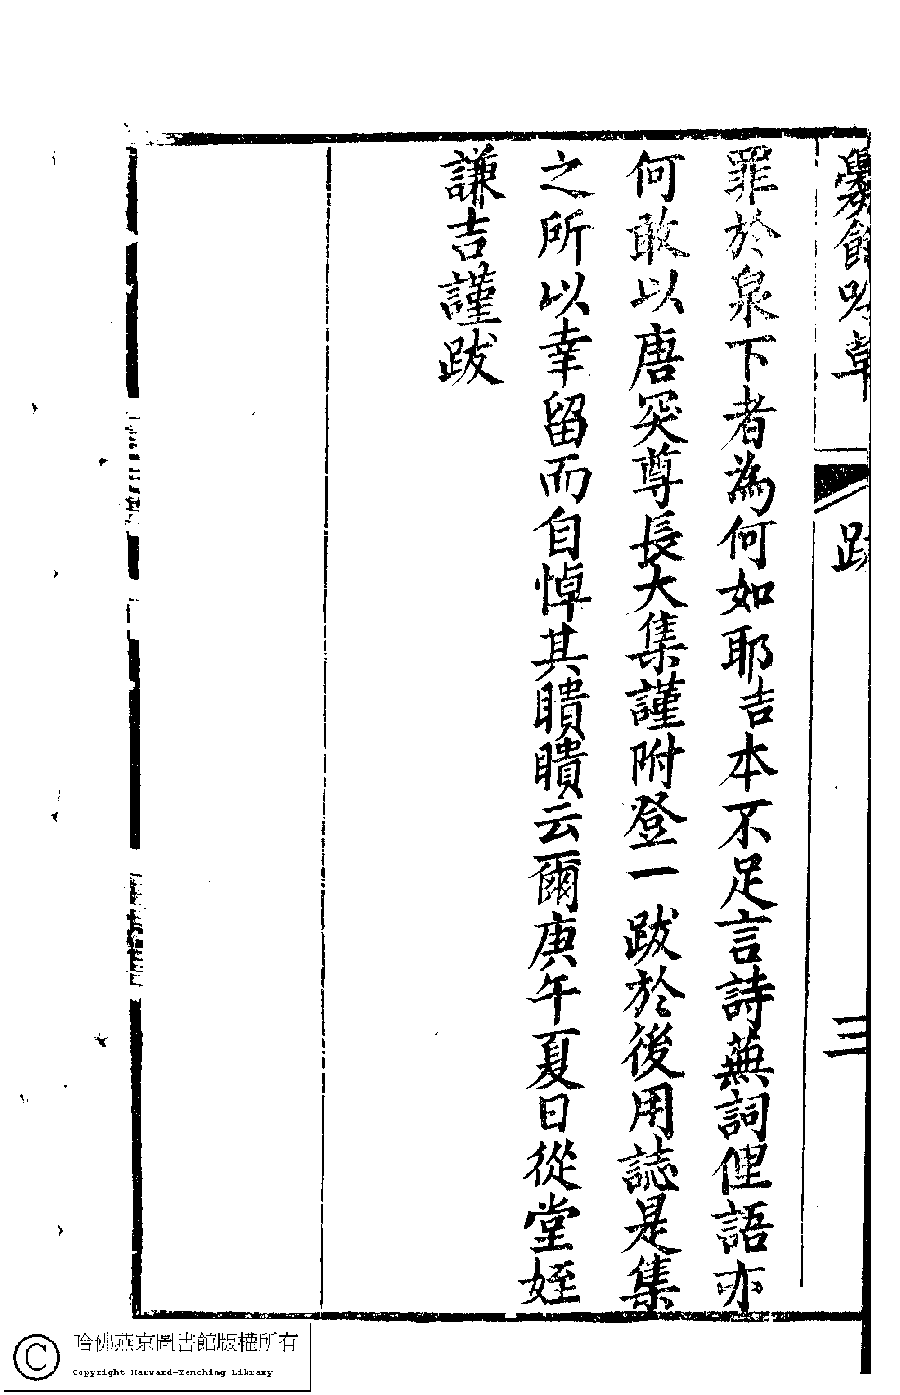 爨餘吟草
跋
三
罪於泉下者為何如耶吉本不足言詩蕪詞俚語亦
何敢以唐突尊長大集謹附登一跋於後用誌是集
之所以幸留而自悼其瞶瞶云爾庚午夏日從堂姪
謙吉謹跋
哈佛燕京圖書館版權所有
Copyright Harvard-Yenching Library